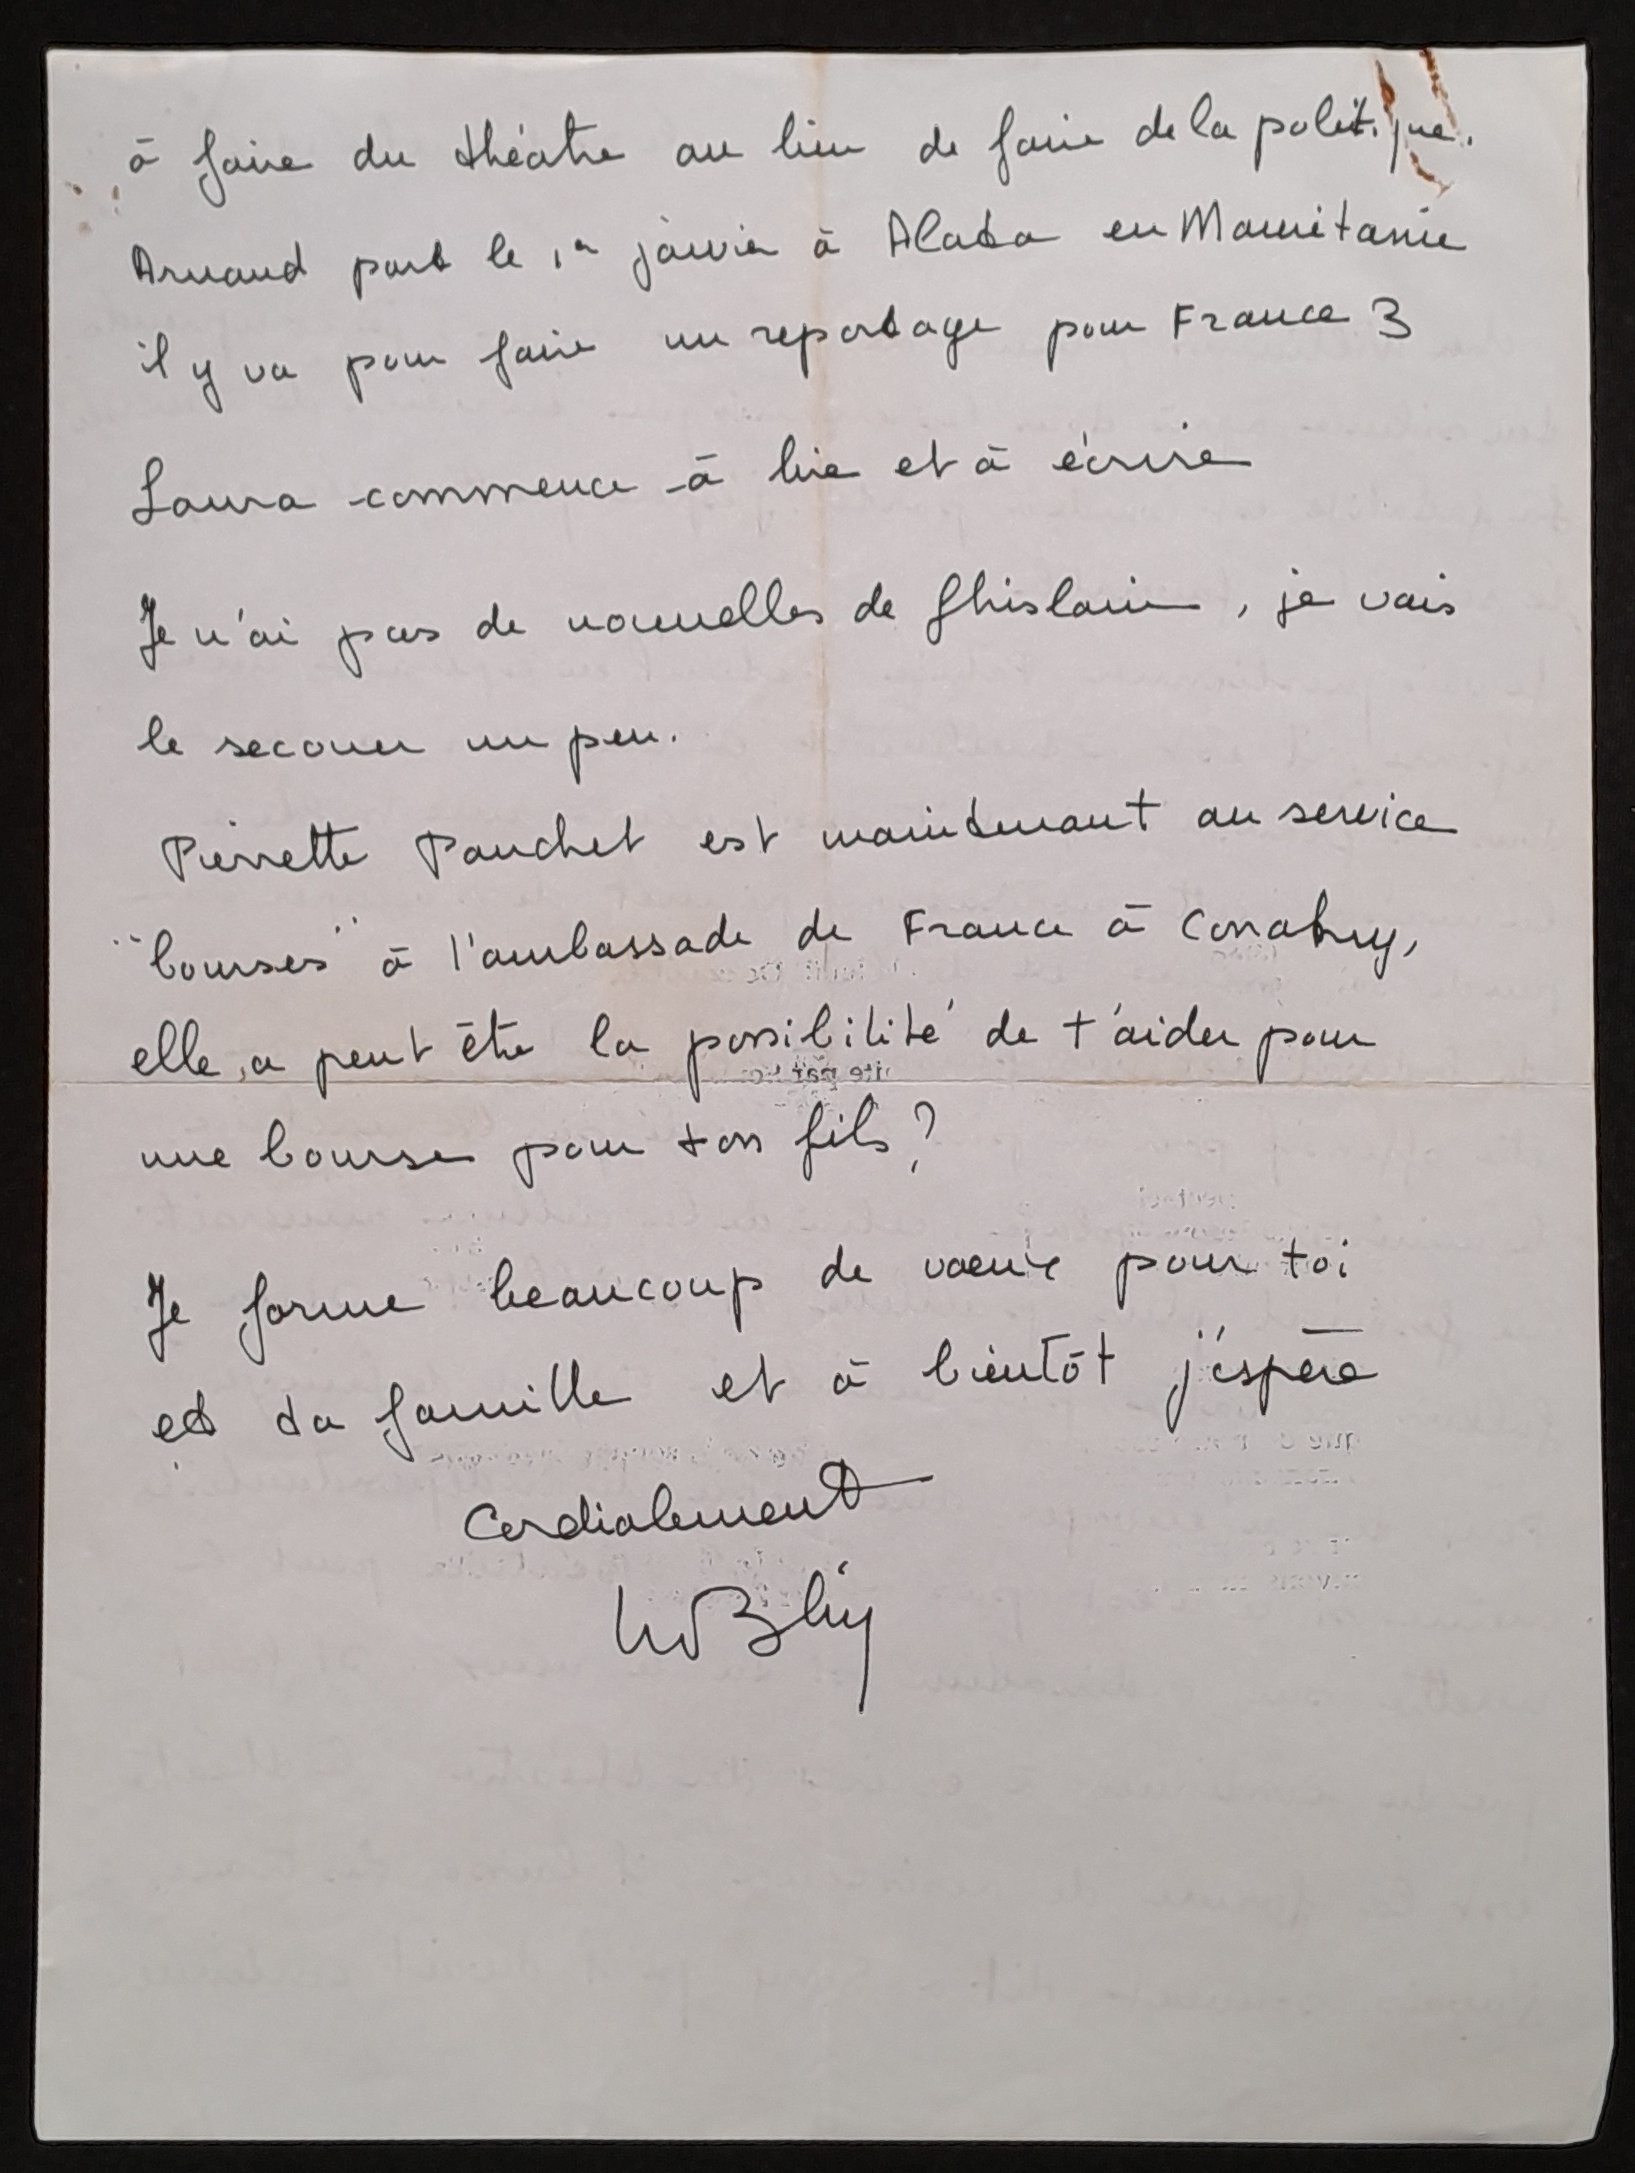 à faire du théatre au lieu de faire de la politique.
Arnaud part le 1er janvier à Alata en Mauritanie
il y va pour faire un reportage pour France 3
Laura commence à lire et à écrire
Je n'ai pas de nouvelles de Ghislain, je vais
le secouer un peu.
Pierrette Pauchet est maintenant au service
"bourses" à l'ambassade de France à Conakry,
elle a peut être la possibilité de t'aider pour
une bourse pour ton fils ?
Je forme beaucoup de voeux pour toi
et ta famille et à bientôt j'espère
Cordialement